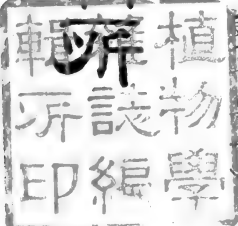 植物學
雜誌編
輯所印